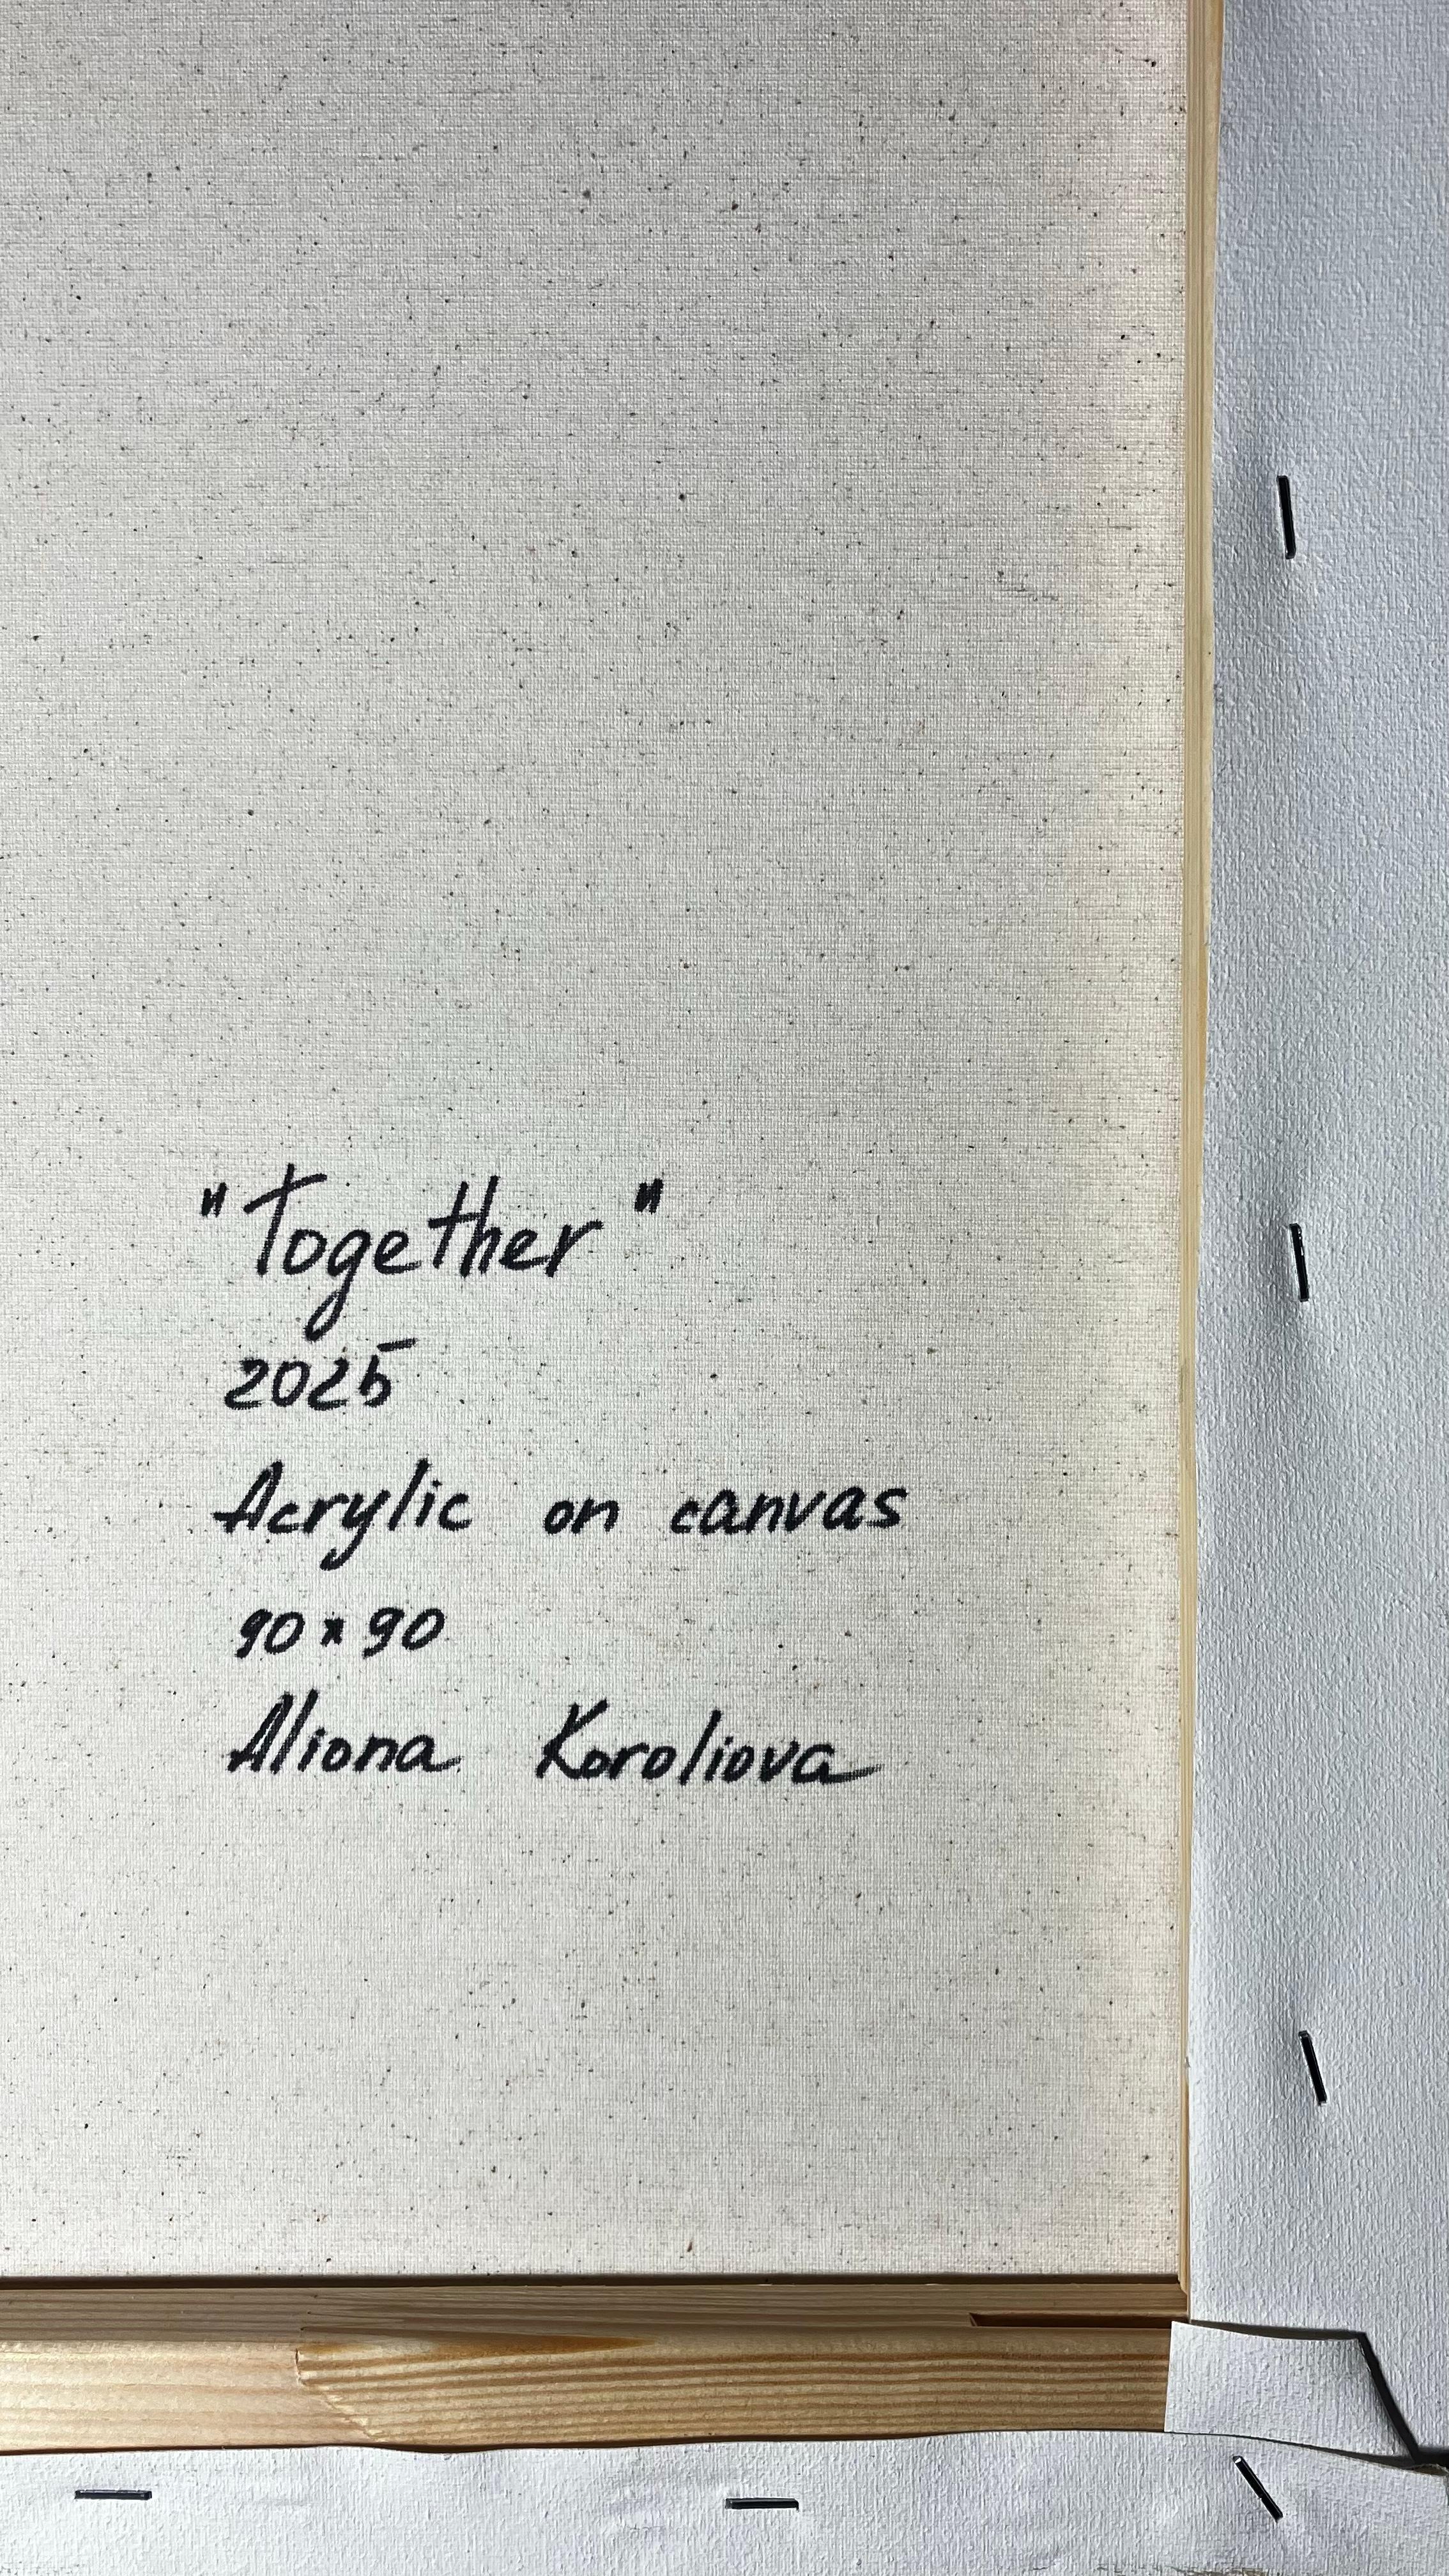 "Together"
2025
Acrylic on canvas
90×90
Aliona Koroliova